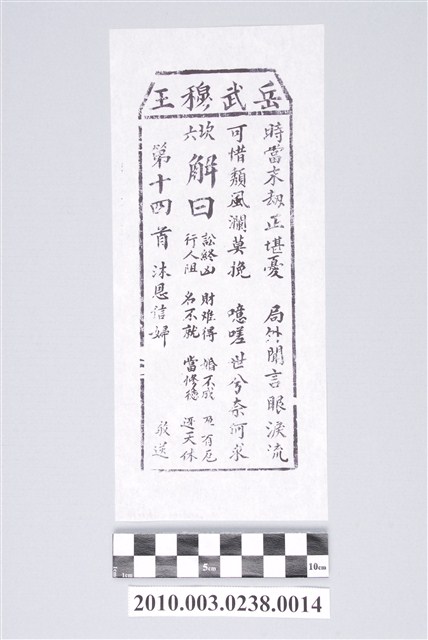 岳武穆王
時當末劫正堪憂 局外閒言眼淚流
可惜頹風瀾莫挽 噫嗟世兮奈何求
坎六 解曰
訟終凶 財難得 婚不成 有厄
行人阻 名不就 當修德 天休
第十四首 沐恩信婦 敬送
1cm 5cm 10cm
2010.003.0238.0014